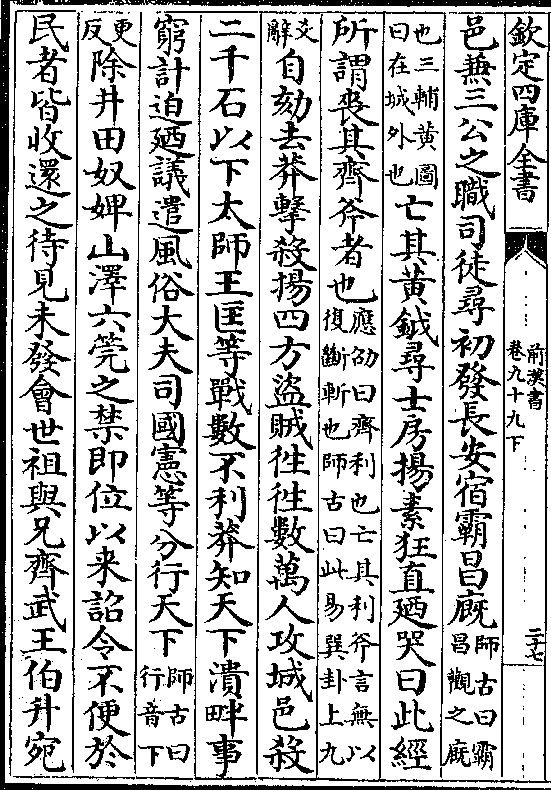 欽定四庫全書
前漢書
卷九十九下
三十七
邑兼三公之職司徒尋初發長安宿霸昌廐師古曰霸昌觀之廐
也三輔黄圖曰在城外也亡其黄鉞尋士房揚素狂直廼哭曰此經
所謂喪其齊斧者也應劭曰齊利也亡其利斧言無以復斷斬也師古曰此易巽卦上九
爻辭自劾去莽擊殺揚四方盜賊往往數萬人攻城邑殺
二千石以下太師王匡等戰數不利莽知天下潰畔事
窮計迫廼議遣風俗大夫司國憲等分行天下師古曰行音下
更反除井田奴婢山澤六筦之禁即位以来詔令不便於
民者皆收還之待見未發會世祖與兄齊武王伯升宛